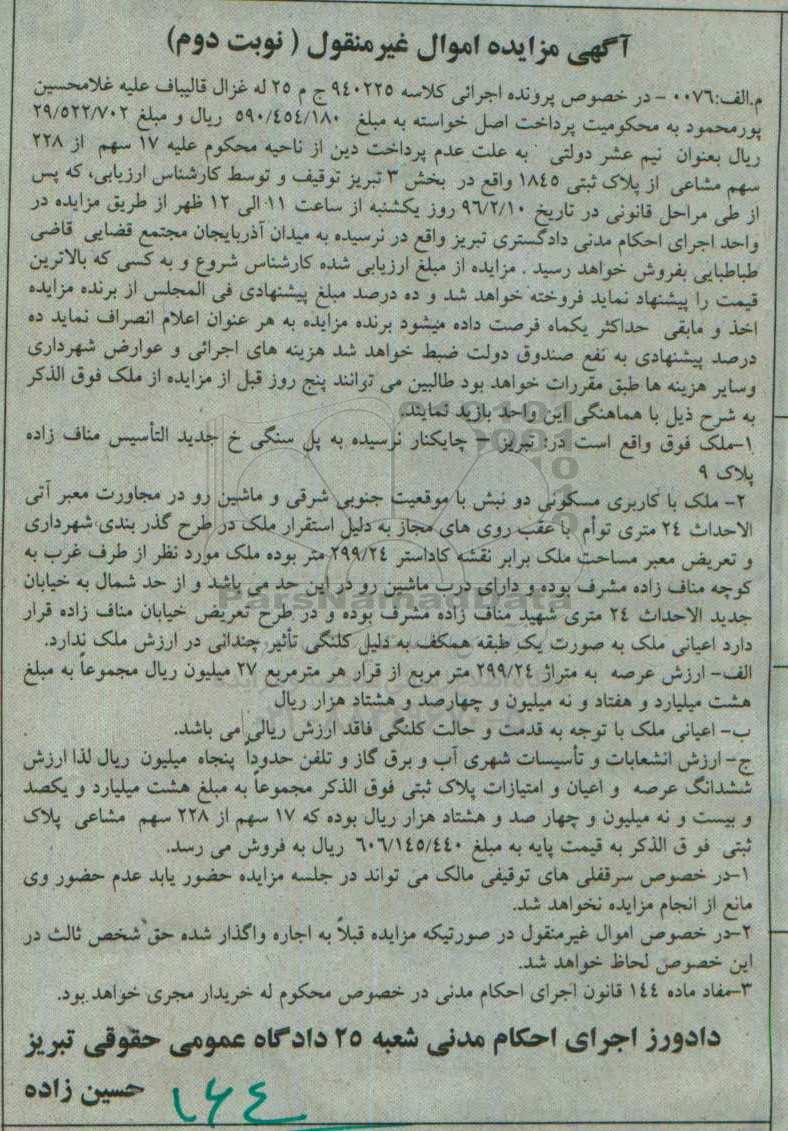 آگهی مزایده اموال غیرمنقول ( نوبت دوم)
م.الف:۰۰۷۶ - در خصوص پرونده اجرائی کلاسه ۹۴۰۲۲۵ ج م ۲۵ له غزال قالیباف علیه غلامحسین
پورمحمود به محکومیت پرداخت اصل خواسته به مبلغ ۵۹۰/۴۵۴/۱۸۰ ریال و مبلغ ۲۹/۵۲۲/۷۰۲
ریال بعنوان نیم عشر دولتی به علت عدم پرداخت دین از ناحیه محکوم علیه ۱۷ سهم از ۲۲۸
سهم مشاعی از پلاک ثبتی ۱۸۴۵ واقع در بخش ۳ تبریز توقیف و توسط کارشناس ارزیابی، که پس
از طی مراحل قانونی در تاریخ ۹۶/۲/۱۰ روز یکشنبه از ساعت ۱۱ الی ۱۲ ظهر از طریق مزایده در
واحد اجرای احکام مدنی دادگستری تبریز واقع در نرسیده به میدان آذربایجان مجتمع قضایی قاضی
طباطبایی بفروش خواهد رسید . مزایده از مبلغ ارزیابی شده کارشناس شروع و به کسی که بالاترین
قیمت را پیشنهاد نماید فروخته خواهد شد و ده درصد مبلغ پیشنهادی فی المجلس از برنده مزایده
اخذ و مابقی حداکثر یکماه فرصت داده میشود برنده مزایده به هر عنوان اعلام انصراف نماید ده
درصد پیشنهادی به نفع صندوق دولت ضبط خواهد شد هزینه های اجرائی و عوارض شهرداری
وسایر هزینه ها طبق مقررات خواهد بود طالبین می توانند پنج روز قبل از مزایده از ملک فوق الذکر
به شرح ذیل با هماهنگی این واحد بازید نمایند.
۱-ملک فوق واقع است در: تبریز – چایکنار نرسیده به پل سنگی خ جدید التأسیس مناف زاده
پلاک ۹
۲- ملک با کاربری مسکونی دو نبش با موقعیت جنوبی شرقی و ماشین رو در مجاورت معبر آتی
الاحداث ۲۴ متری توأم با عقب روی های مجاز به دلیل استقرار ملک در طرح گذر بندی شهرداری
و تعریض معبر مساحت ملک برابر نقشه کاداستر ۲۹۹/۲۴ متر بوده ملک مورد نظر از طرف غرب به
کوچه مناف زاده مشرف بوده و دارای درب ماشین رو در این حد می باشد و از حد شمال به خیابان
جدید الاحداث ۲۴ متری شهید مناف زاده مشرف بوده و در طرح تعریض خیابان مناف زاده قرار
دارد اعیانی ملک به صورت یک طبقه همکف به دلیل کلنگی تأثیر چندانی در ارزش ملک ندارد.
الف- ارزش عرصه به متراژ ۲۹۹/۲۴ متر مربع از قرار هر مترمربع ۲۷ میلیون ریال مجموعاً به مبلغ
هشت میلیارد و هفتاد و نه میلیون و چهارصد و هشتاد هزار ریال
ب- اعیانی ملک با توجه به قدمت و حالت کلنگی فاقد ارزش ریالی می باشد.
ج- ارزش انشعابات و تأسیسات شهری آب و برق گاز و تلفن حدوداً پنجاه میلیون ریال لذا ارزش
ششدانگ عرصه و اعیان و امتیازات پلاک ثبتی فوق الذکر مجموعاً به مبلغ هشت میلیارد و یکصد
و بیست و نه میلیون و چهار صد و هشتاد هزار ریال بوده که ۱۷ سهم از ۲۲۸ سهم مشاعی پلاک
ثبتی فو ق الذکر به قیمت پایه به مبلغ ۶۰۶/۱۴۵/۴۴۰ ریال به فروش می رسد.
۱-در خصوص سرقفلی های توقیفی مالک می تواند در جلسه مزایده حضور یابد عدم حضور وی
مانع از انجام مزایده نخواهد شد.
۲-در خصوص اموال غیرمنقول در صورتیکه مزایده قبلاً به اجاره واگذار شده حق شخص ثالث در
این خصوص لحاظ خواهد شد.
۳-مفاد ماده ۱۴۴ قانون اجرای احکام مدنی در خصوص محکوم له خریدار مجری خواهد بود.
دادورز اجرای احکام مدنی شعبه ۲۵ دادگاه عمومی حقوقی تبریز
حسین زاده
۱۶۴
ParsNamadData